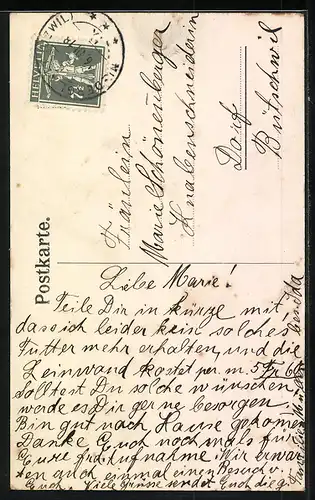 HELVETIA
Postkarte.
Fräulein
Marie Schönenberger
Knabenschneiderin
Dorf
Bütschwil
Liebe Marie!
Teile Dir in kürze mit,
dass ich leider kein solches
Futter mehr erhalten, und die
Leinwand kostet per m. 5 Fr 60
solltest Du solche wünschen,
werde es Dir gerne besorgen.
Bin gut nach Hause gekommen
Danke Euch nochmals für
Eure Aufnahme. Wir erwar
ten auch einmal einen Besuch v.
Euch. Viele Grüsse sendet Euch